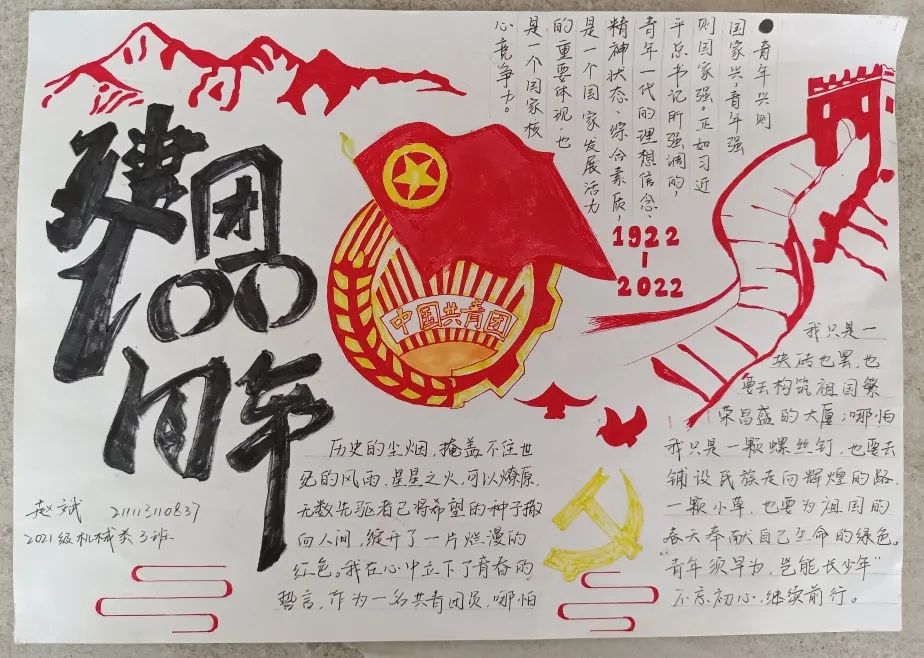 建团
100
周年
●青年兴则
国家兴,青年强
则国家强。正如习近
平总书记所强调的,
青年一代的理想信念、
精神状态、综合素质,
是一个国家发展活力
的重要体现,也
是一个国家核
心竞争力。
1922
-
2022
中国共青团
赵斌 21113110837
2021级机械类3班
历史的尘烟,掩盖不住世
纪的风雨,星星之火,可以燎原.
无数先驱者已将希望的种子撒
向人间,绽开了一片烂漫的
红色。我在心中立下了青春的
誓言,作为一名共青团员,哪怕
我只是一
块砖也罢,也
要去构筑祖国繁
荣昌盛的大厦;哪怕
我只是一颗螺丝钉,也要去
铺设民族走向辉煌的路.
一颗小草,也要为祖国的
春天奉献自己生命的绿色。
"青年须早为,岂能长少年"
不忘初心,继续前行。